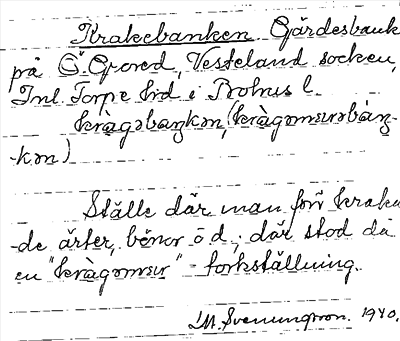 Krakebanken. Gärdesbank
på Ö. Gored, Vesteland socken,
Inl. Torpe hd i Bohus l.
kràgəbaŋkən (kràgomsurəbàŋ-
-kən)
Ställe där man förr kraka-
-de ärter, bönor o d; där stod då
en "kràgomsur" - torkställning.
M. Svenungsson. 1940.